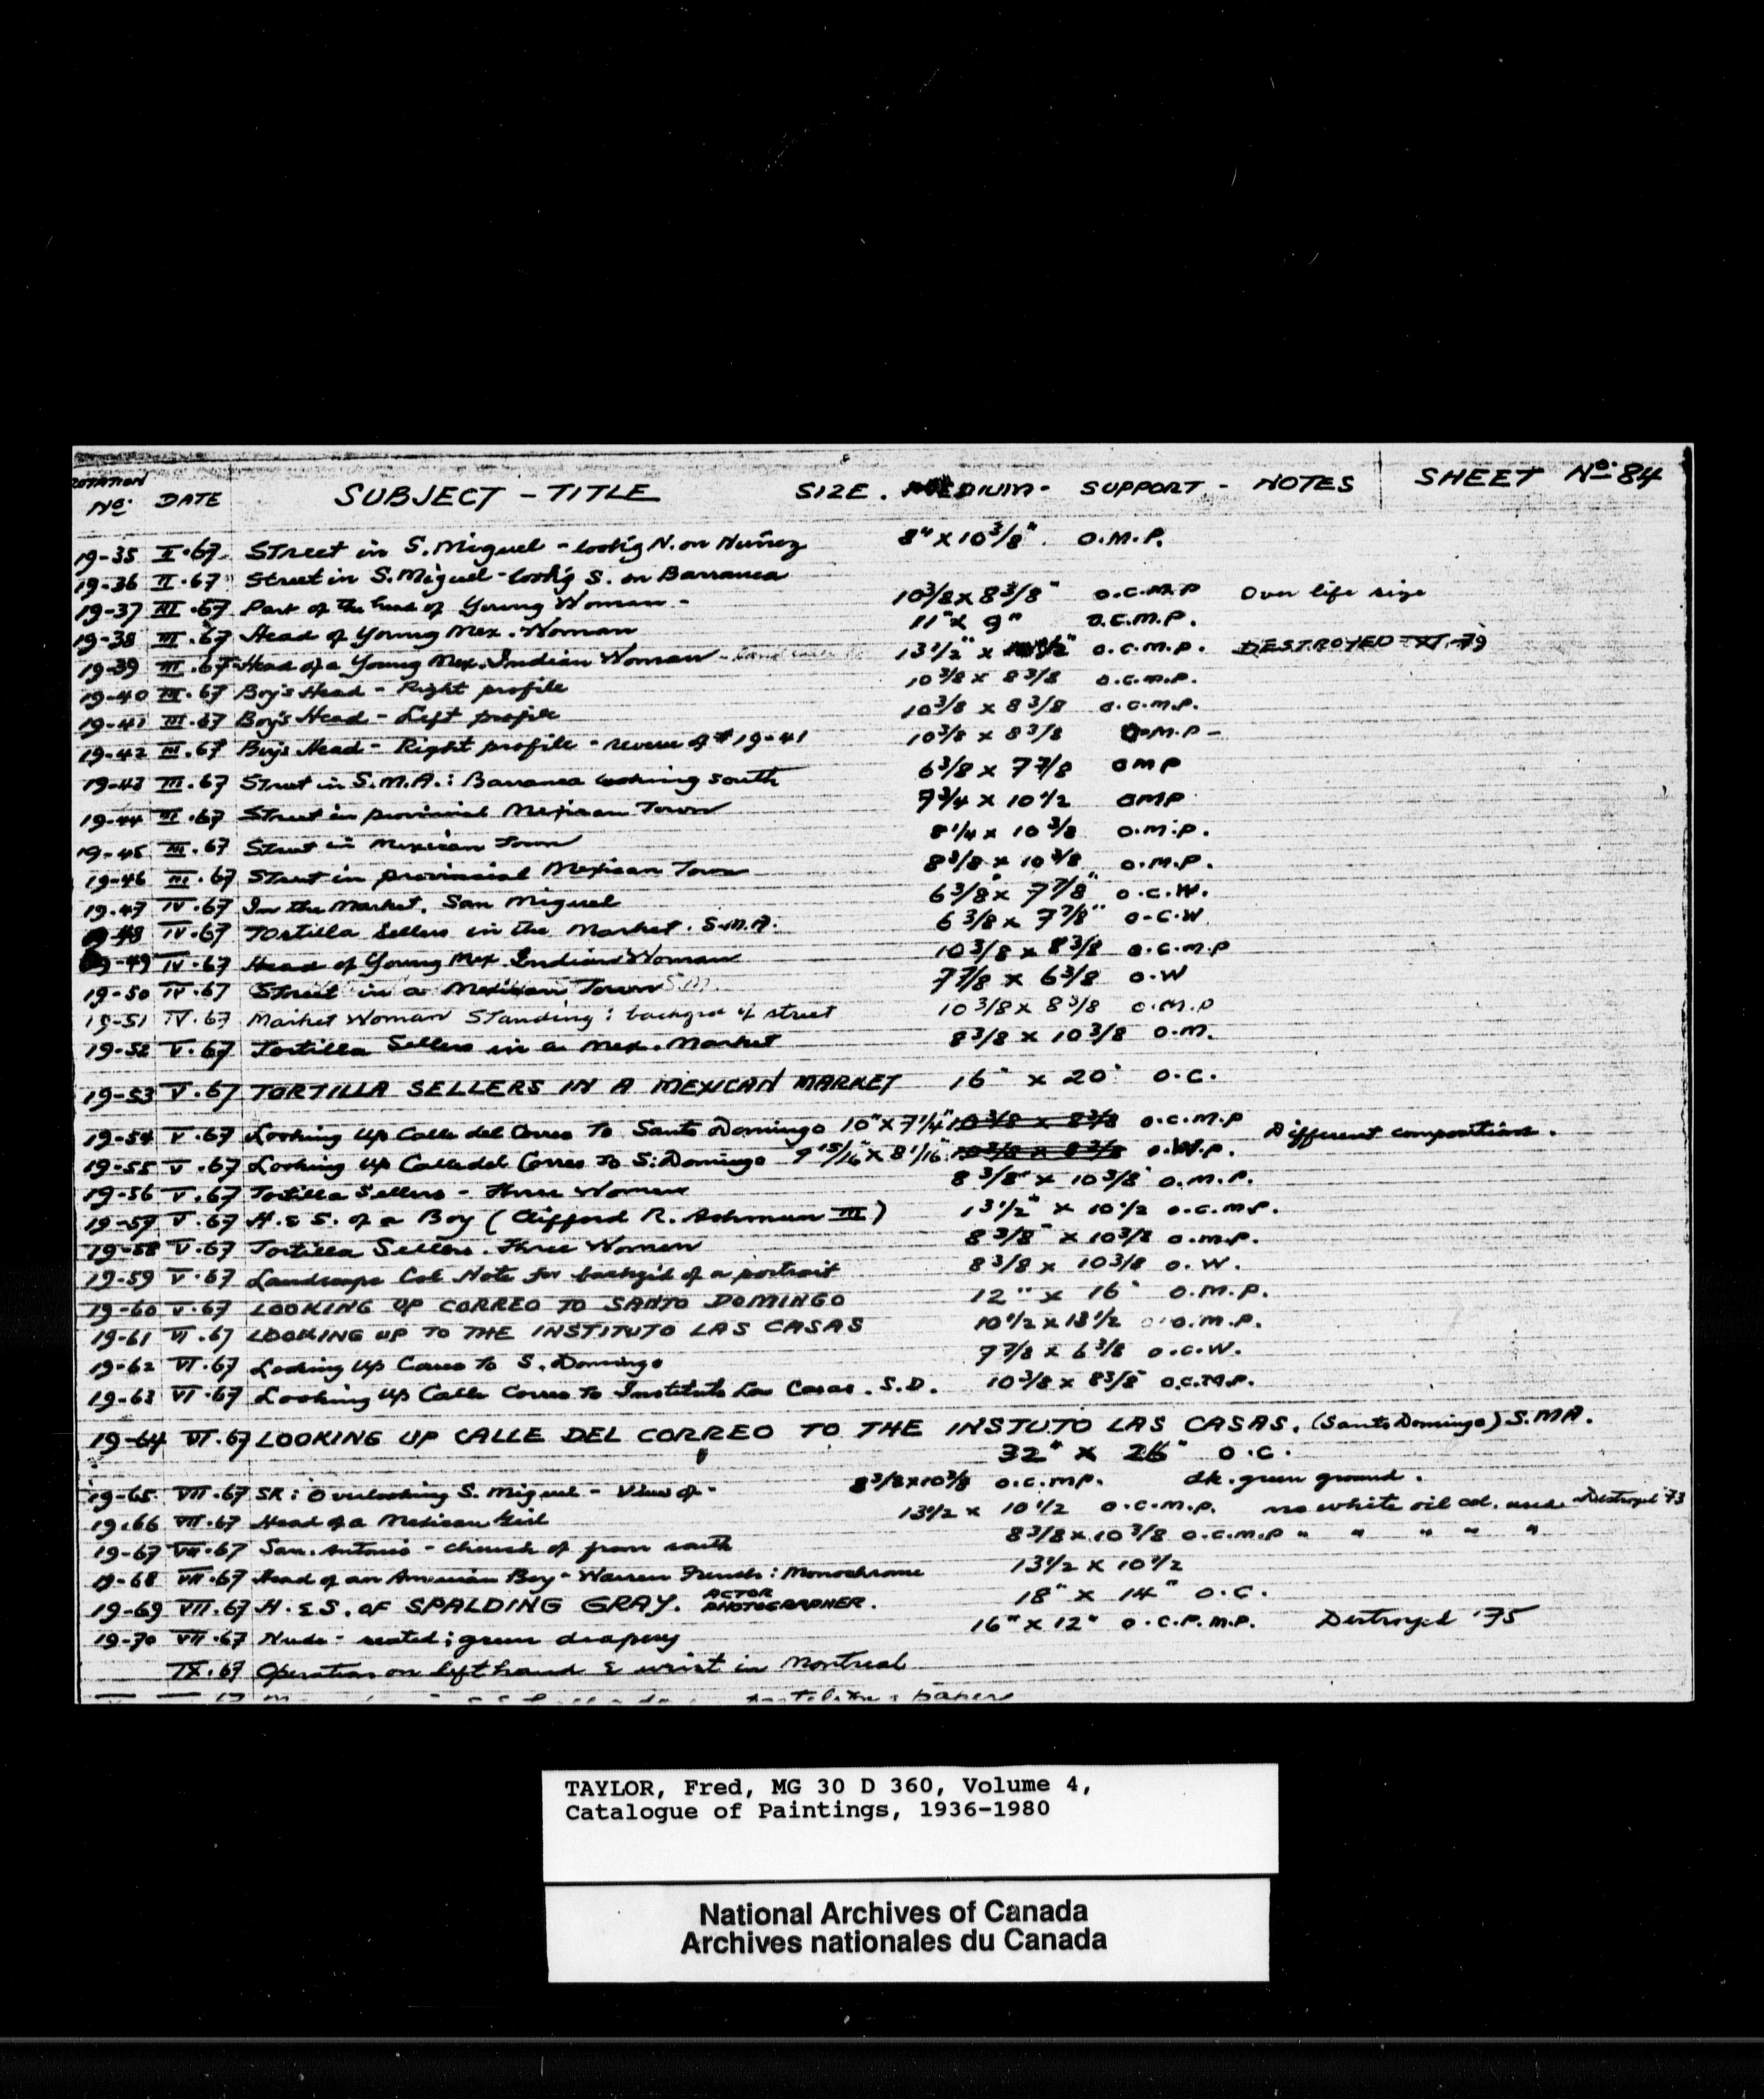 NOTATION Nº. DATE SUBJECT - TITLE SIZE. MEDIUM - SUPPORT - NOTES SHEET Nº. 84
19-35 I.67. Street in S. Miguel - look'g N. on Nuñez 8" x 10 3/8". O.M.P.
19-36 II.67 Street in S. Miguel - look'g S. on Barranca
19-37 III.67 Part of the head of Young Woman - 10 3/8 x 8 3/8" o.c.m.p Over life size
19-38 III.67 Head of Young Mex. Woman 11" x 9" o.c.m.p.
19-39 III.67 Head of a Young Mex. Indian Woman - 13 1/2" x o.c.m.p. DESTROYED XI.79
19-40 III.67 Boy's Head - Right profile 10 3/8 x 8 3/8 o.c.m.p.
19-41 III.67 Boy's Head - Left profile 10 3/8 x 8 3/8 o.c.m.p.
19-42 III.67 Boy's Head - Right profile - reverse of #19-41 10 3/8 x 8 3/8 o.m.p -
19-43 III.67 Street in S.M.A.: Barranca looking south 6 3/8 x 7 7/8 omp
19-44 III.67 Street in provincial Mexican Town 9 3/4 x 10 1/2 omp
19-45 III.67 Street in Mexican Town 8 1/4 x 10 3/8 o.m.p.
19-46 III.67 Street in provincial Mexican Town 8 3/8 x 10 3/8 o.m.p.
19-47 IV.67 In the Market. San Miguel 6 3/8" x 7 7/8" o.c.W.
19-48 IV.67 Tortilla Sellers in the Market. S.M.A. 6 3/8 x 7 7/8" o-c.W
19-49 IV.67 Head of Young Mex. Indian Woman 10 3/8 x 8 3/8 o.c.m.p
19-50 IV.67 Street in a Mexican Town S.M. 7 7/8 x 6 3/8 o.W
19-51 IV.67 Market Woman Standing: backgrd of street 10 3/8 x 8 3/8 o.m.p
19-52 V.67 Tortilla Sellers in a Mex. Market 8 3/8 x 10 3/8 o.m.
19-53 V.67 TORTILLA SELLERS IN A MEXICAN MARKET 16" x 20" O.C.
19-54 V.67 Looking Up Calle del Correo To Santo Domingo 10" x 7 1/4" 10 3/8 x 8 3/8 o.c.m.p Different compositions.
19-55 V.67 Looking Up Calle del Correo To S. Domingo 9 15/16" x 8 1/16" 10 3/8 x 8 3/8 o.W.p.
19-56 V.67 Tortilla Sellers - Three Women 8 3/8" x 10 3/8" o.m.p.
19-57 V.67 H. & S. of a Boy (Clifford R. Ashmun III) 13 1/2" x 10 1/2 o.c.m.p.
19-58 V.67 Tortilla Sellers. Three Women 8 3/8" x 10 3/8 o.m.p.
19-59 V.67 Landscape Col. Note for backgrd of a portrait 8 3/8 x 10 3/8 o.W.
19-60 V.67 LOOKING UP CORREO TO SANTO DOMINGO 12" x 16" o.m.p.
19-61 VI.67 LOOKING UP TO THE INSTITUTO LAS CASAS 10 1/2 x 13 1/2 o.m.p.
19-62 VI.67 Looking Up Correo to S. Domingo 7 7/8 x 6 3/8 o.c.W.
19-63 VI.67 Looking Up Calle Correo to Instituto Las Casas. S.D. 10 3/8 x 8 3/8" o.c.m.p.
19-64 VI.67 LOOKING UP CALLE DEL CORREO TO THE INSTUTO LAS CASAS. (Santo Domingo) S.MA.
32" x 26" O.C.
19-65 VII.67 SK: Overlooking S. Miguel - View of - 8 3/8 x 10 3/8 o.c.mp. dk. green ground.
19-66 VII.67 Head of a Mexican Girl 13 1/2 x 10 1/2 o.c.m.p. no white oil col. used Destroyed '73
19-67 VII.67 San Antonio - church of from south 8 3/8 x 10 3/8 o.c.m.p " " " " "
19-68 VII.67 Head of an American Boy - Warren French: Monochrome 13 1/2 x 10 1/2
19-69 VII.67 H. & S. OF SPALDING GRAY. ACTOR PHOTOGRAPHER. 18" x 14" O.C.
19-70 VII.67 Nude - seated; green drapery 16" x 12" o.c.P.m.p. Destroyed '75
IX.67 Operation on left hand & wrist in Montreal
papers
TAYLOR, Fred, MG 30 D 360, Volume 4,
Catalogue of Paintings, 1936-1980
National Archives of Canada
Archives nationales du Canada